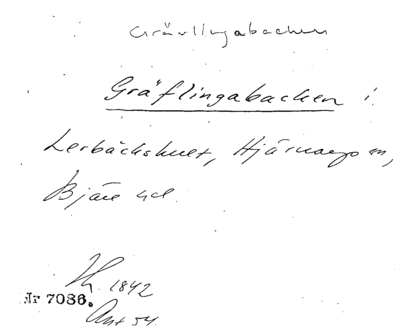 Grävlingabacken
Gräflingabacken i
Lerbäckshult, Hjärnarps sn,
Bjäre hd.
Th. 1842
Nr 7086.
Ant 54.